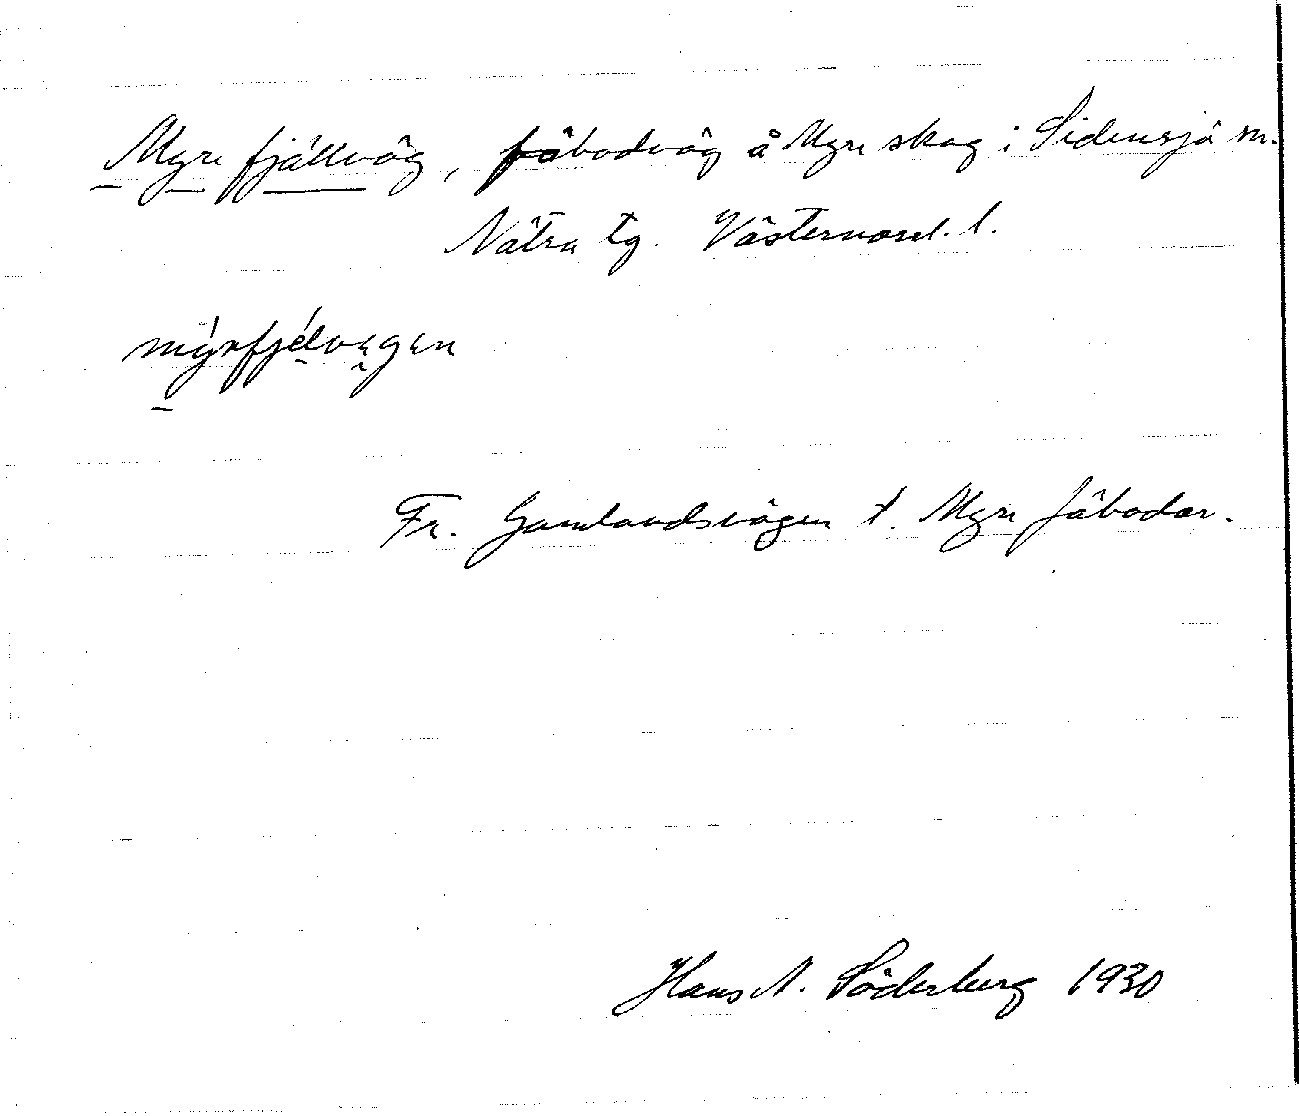 Myre fjällväg, fäbodväg å Myre skog i Sidensjö sn.
Nätra tg. Västernorrl. l.
mýrfjélvęgen
Fr. Gamlandsvägen t. Myre fäbodar.
Hans N. Söderberg 1930